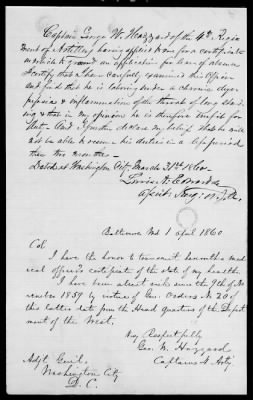 Captain George W. Hazzard of the 4th Regi
ment of Artillery having applied to me for a certificate
on which to ground an application for leave of absence
I certify that I have carefully examined this Officer
and find that he is laboring under a chronic dys-
pepsia & inflammation of the throat of long stand
ing & that in my opinion he is therefore unfit for
duty. And I further declare my belief that he will
not be able to resume his duties in a less period
than two months
Dated at Washington City March 31st 1860
Lewis A. Edwards
Asst. Surg. U.S.A.
Baltimore Md 1 April 1860
Col
I have the honor to transmit herewith a med
ical officers certificate of the state of my health
I have been absent since the 9th of No
vember 1859 by virtue of Genl. Orders No 20 of
this latter date from the Head Quarters of the Depart
ment of the West.
Very Respectfully
Geo. W. Hazzard
Captain 4 Arty.
Adjt. Genl.
Washington City
D. C.